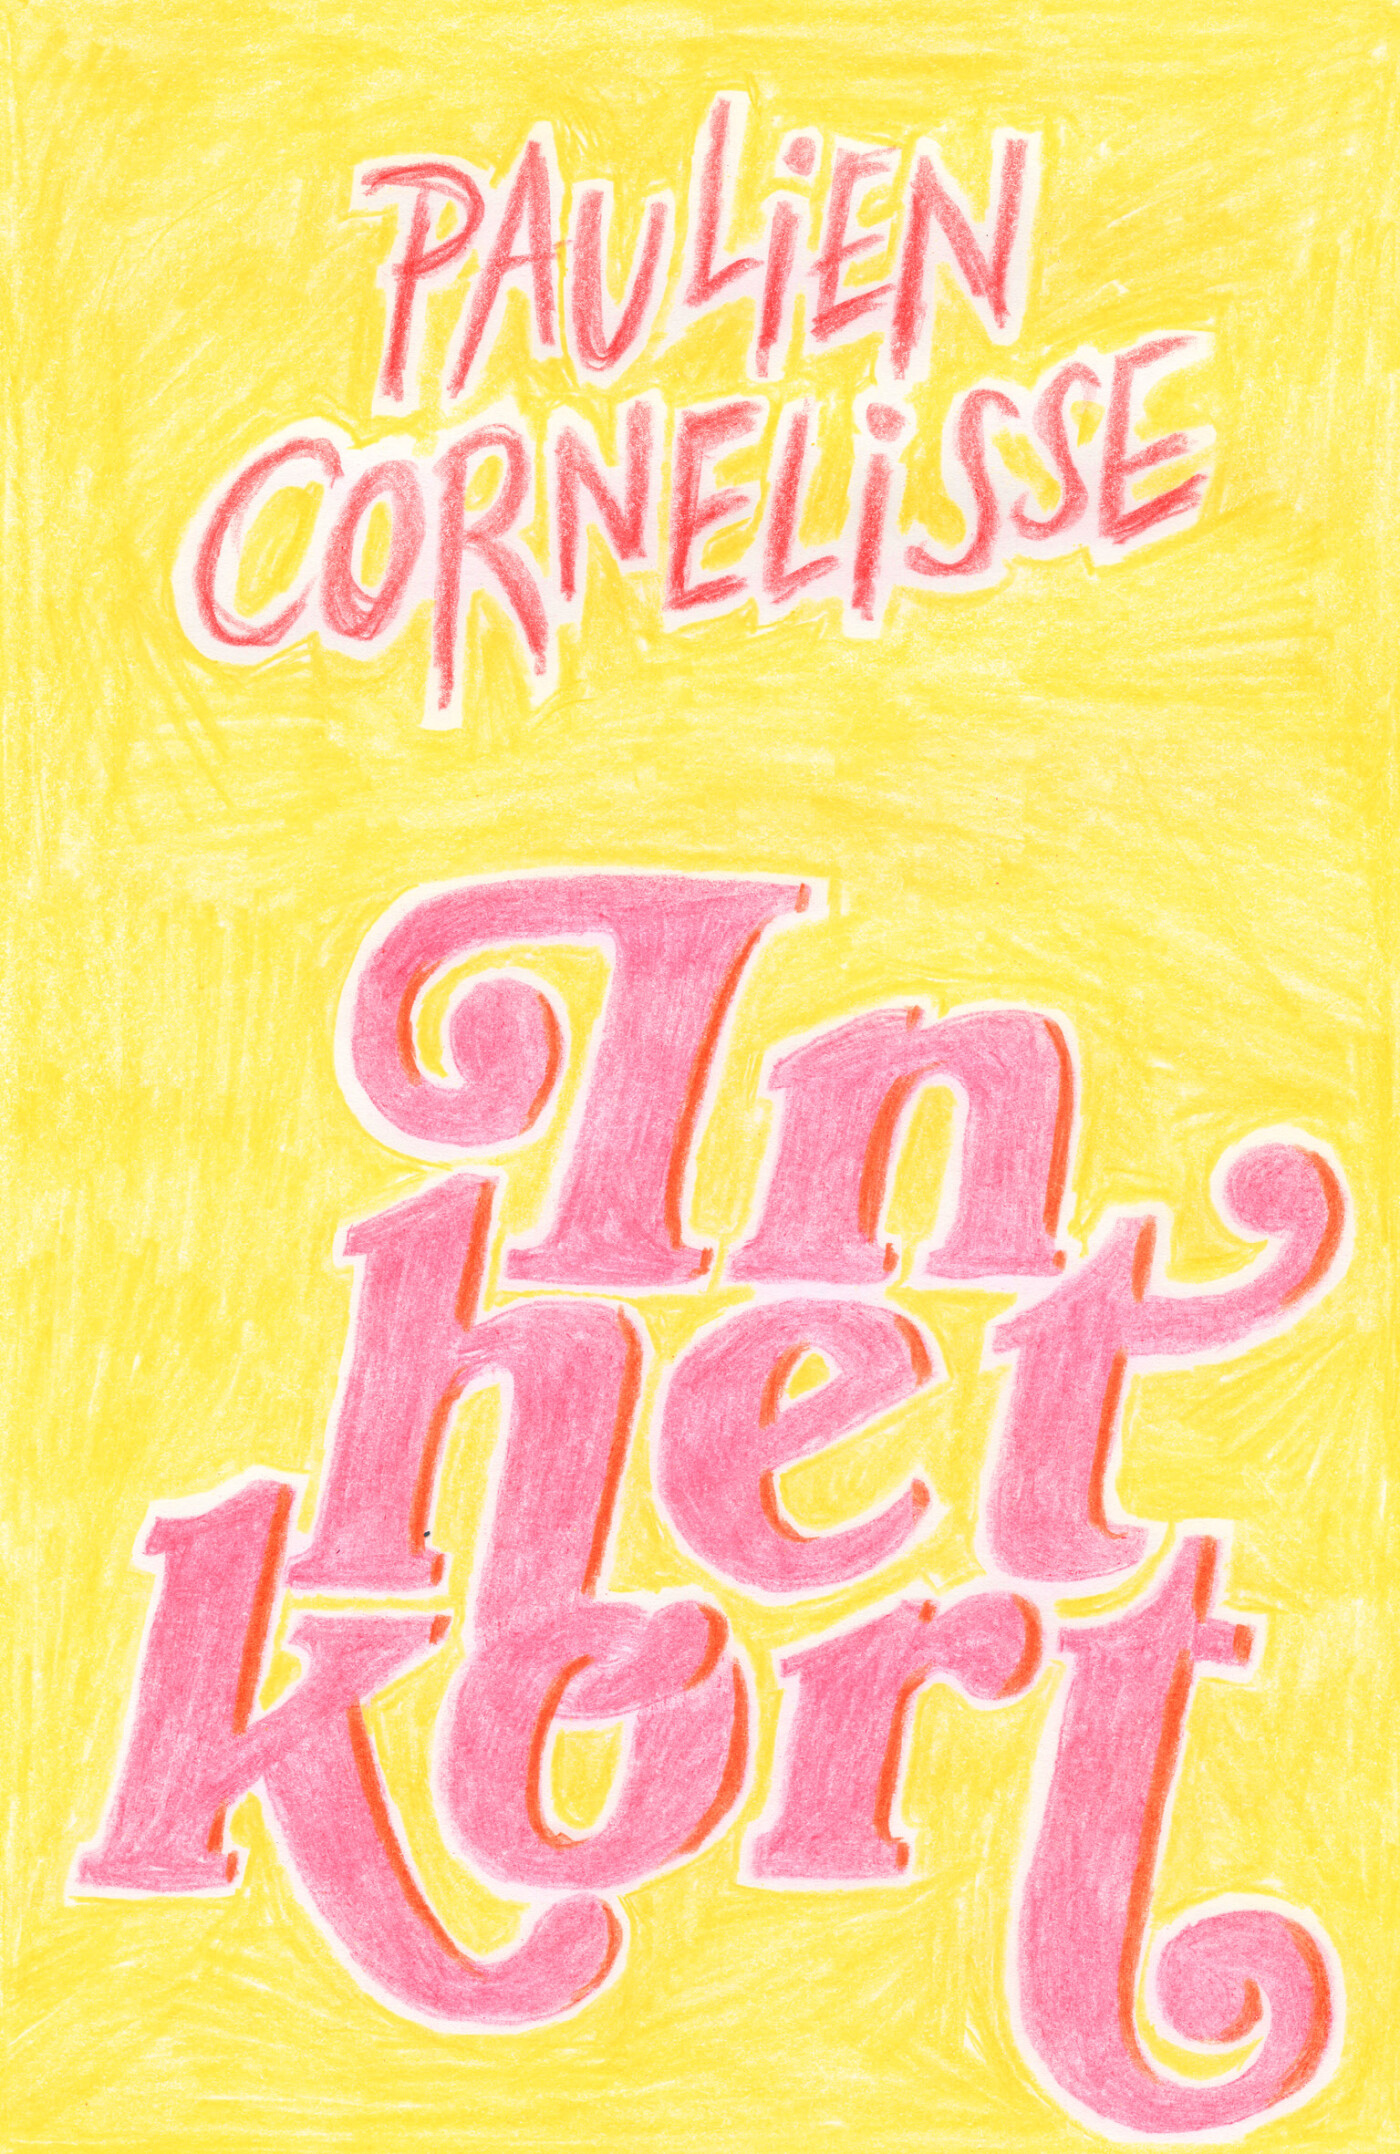 PAULiEN
CORNELiSSE
In
het
kort